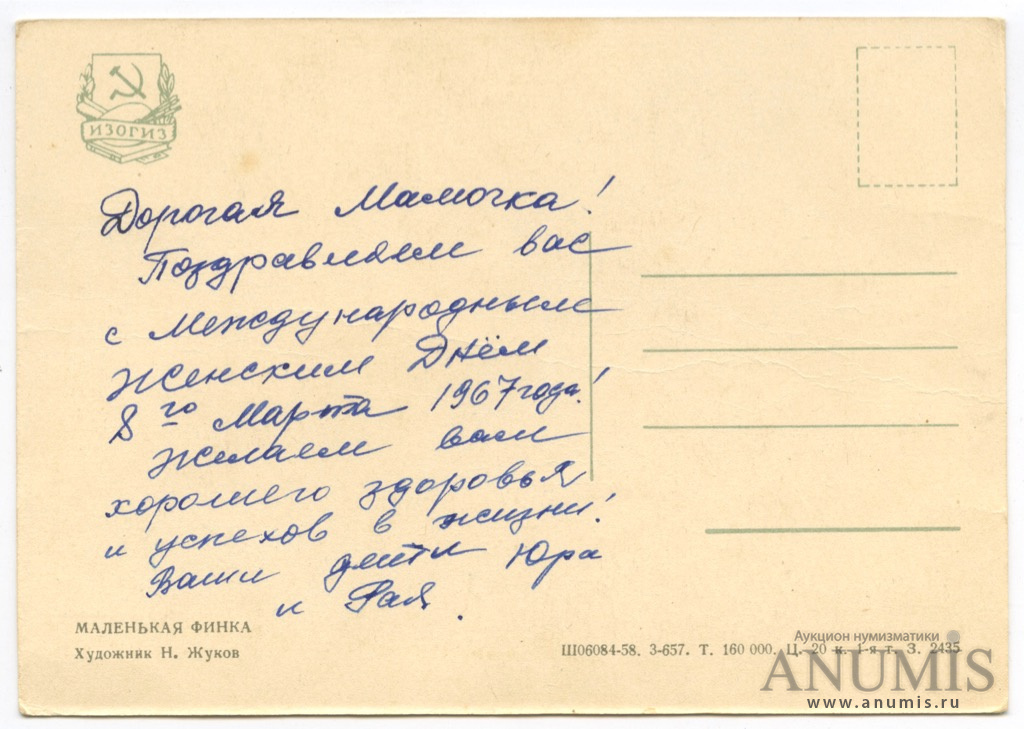 ИЗОГИЗ
Дорогая Мамочка!
Поздравляем вас
с Международным
Женским Днём
8го Марта 1967 года!
Желаем вам
хорошего здоровья
и успехов в жизни!
Ваши дети Юра
и Рая.
МАЛЕНЬКАЯ ФИНКА
Художник Н. Жуков
Ш06084-58. 3-657. Т. 160 000. Ц. 20 к. 1-я т. З. 2435
Аукцион нумизматики
ANUMIS
www.anumis.ru